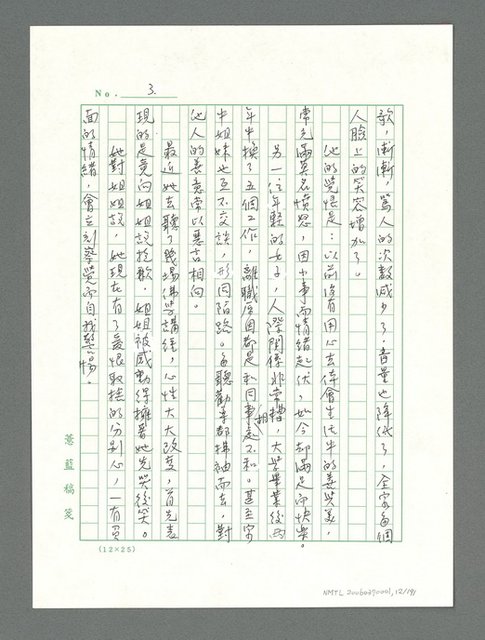 No. 3.
歌，漸漸，罵人的次數減少了，音量也降低了，全家每個
人臉上的笑容增加了。
他的覺悟是：以前沒有用心去体會生活中的美善美，
常充滿莫名憤怒，因小事而情緒起伏，如今却滿足而快樂。
另一位年輕的女子，人際關係非常糟，大學畢業後兩
年中換了五個工作，離職原因都是和同事相處不和。甚至家
中姐妹也互不交談，形同陌路。每聽勸末都拂袖而去，對
他人的善意常以惡言相向。
最近她去聽了幾場佛學講經，心性大大改變，首先表
現的是竟向姐姐說抱歉，姐姐被感動得擁著她先哭後笑。
她對姐姐說，她現在有了憂恨取捨的分別心，一有負
面的情緒，會立刻察覺而自我警惕。
薏藍稿箋
(12×25)
NMTL 20060390001, 12/191